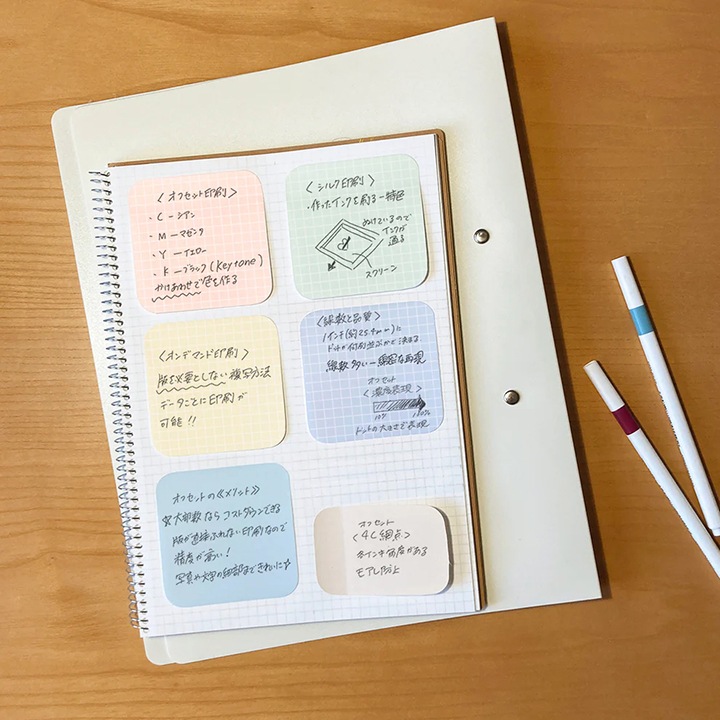 〈オフセット印刷〉
・C ー シアン
・M ー マゼンタ
・Y ー イエロー
・K ー ブラック(Key tone)
かけあわせで色を作る
〈シルク印刷〉
・作ったインクを刷る ー 特色
ぬけているので
インクが
通る
スクリーン
〈オンデマンド印刷〉
版を必要としない複写方法
データごとに印刷が
可能!!
〈線数と品質〉
1インチ(約25.4mm)に
ドットが何列並ぶかで決まる
線数多い ー 綿密な再現
オフセット
〈濃度表現〉
10% 100%
ドットの大きさで表現
オフセットの《メリット》
大部数ならコストダウンできる
版が直接ふれない印刷なので
精度が高い!
写真や文字の細部まできれいに
オフセット
〈4C網点〉
各インキ角度がある
モアレ防止